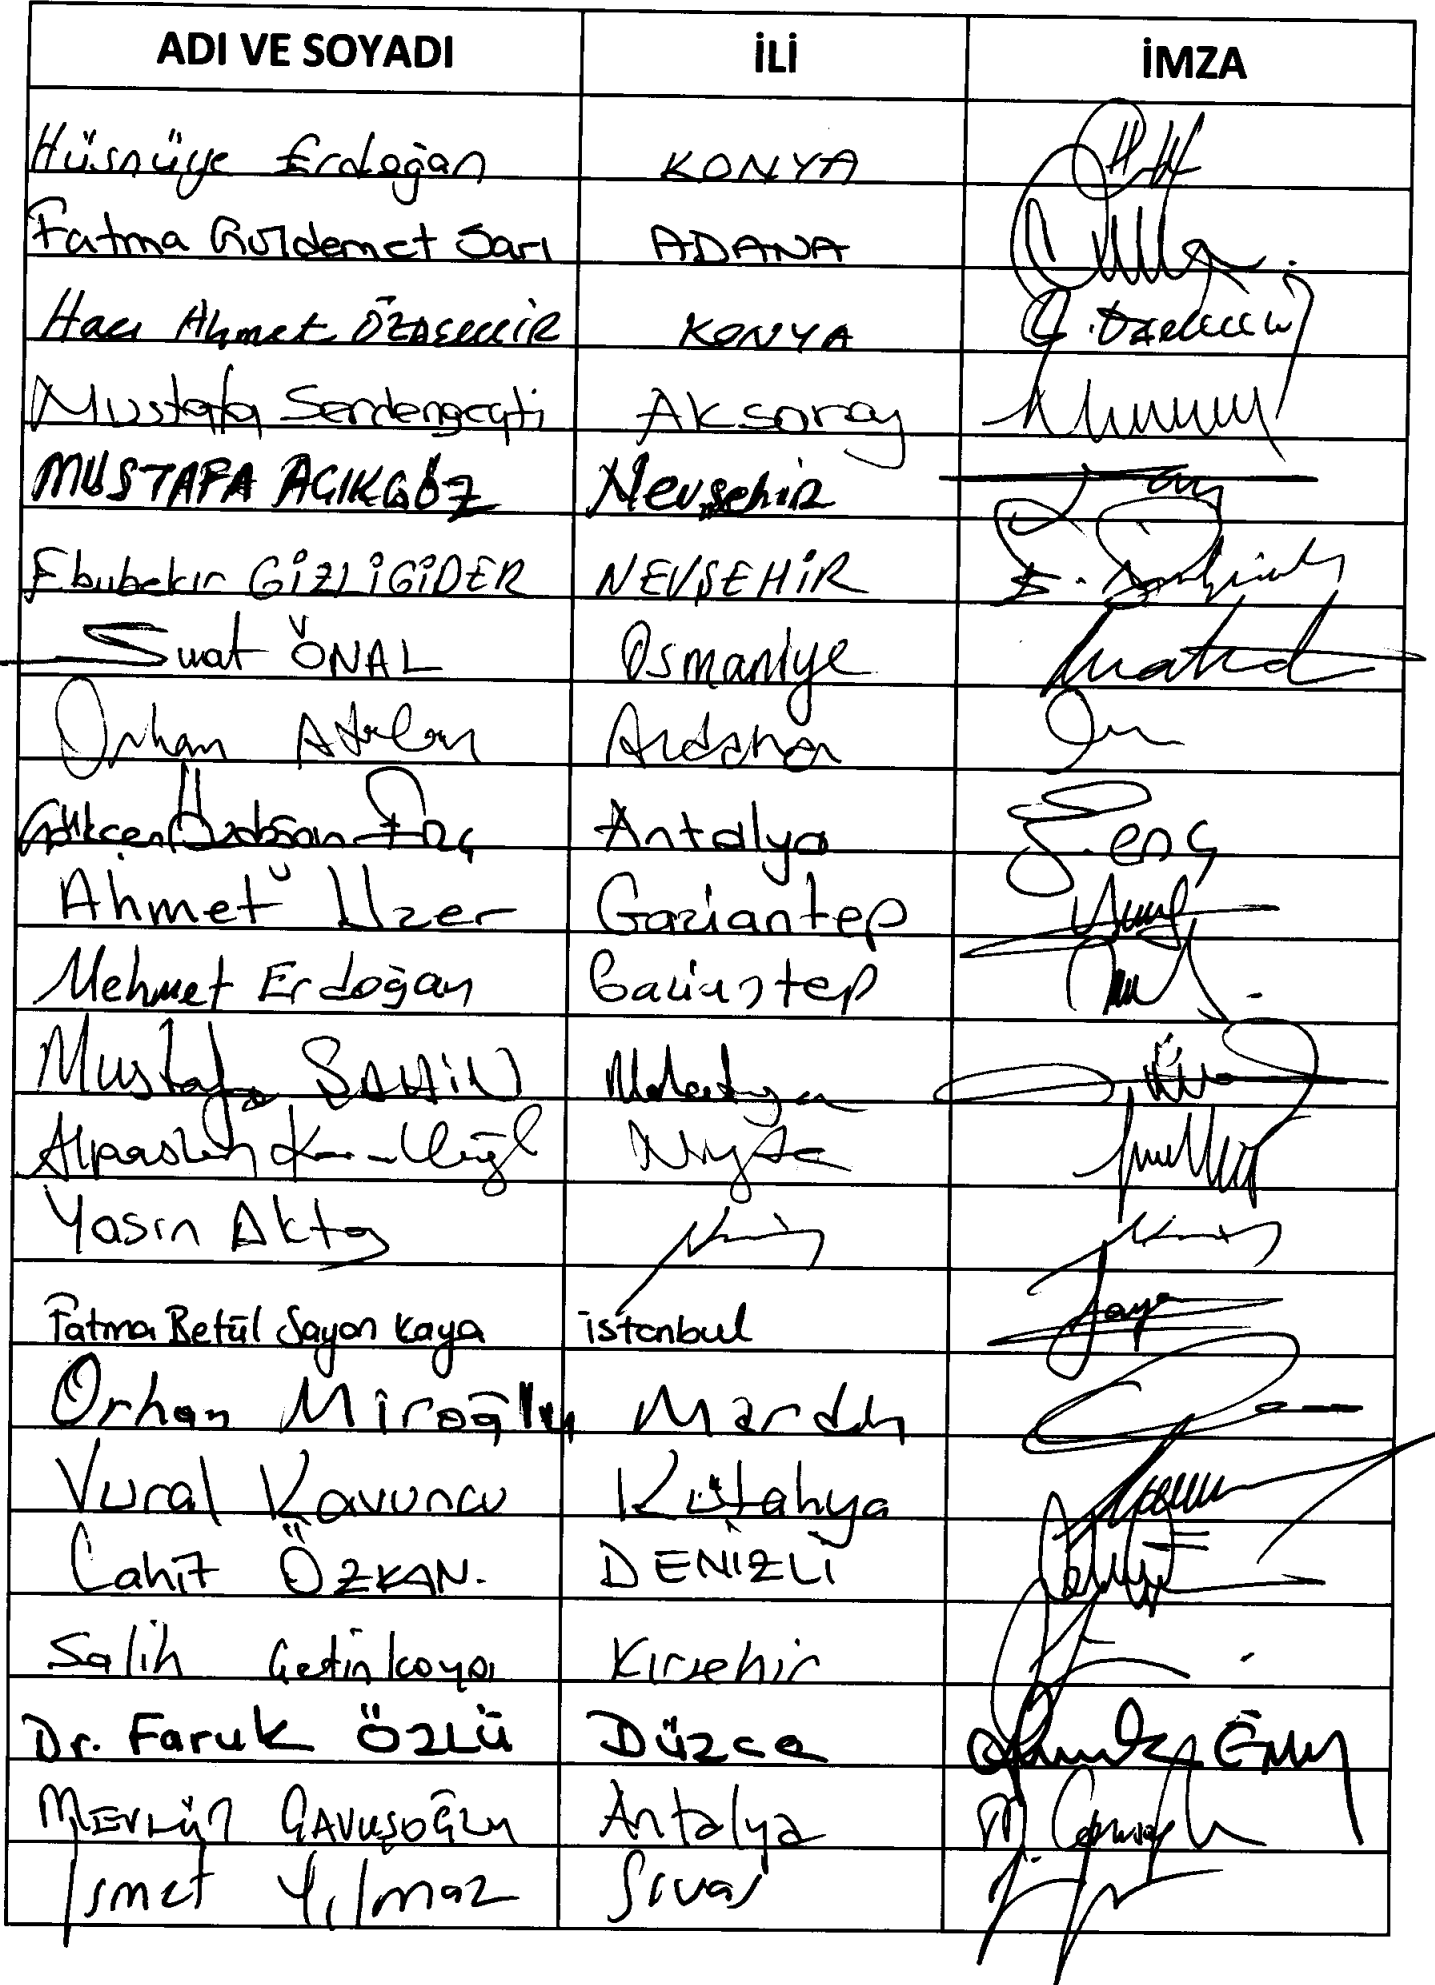 ADI VE SOYADI İLİ İMZA
Hüsnüye Erdoğan KONYA
Fatma Güldemet Sarı ADANA
Hacı Ahmet ÖZDEMİR KONYA
Mustafa Serdengeçti Aksaray
MUSTAFA AÇIKGÖZ Nevşehir
Ebubekir GİZLİGİDER NEVŞEHİR
Suat ÖNAL Osmaniye
Orhan Atalay Ardahan
Gökcen Özdoğan Enç Antalya
Ahmet Uzer Gaziantep
Mehmet Erdoğan Gaziantep
Mustafa ŞAHİN Malatya
Alpaslan Niğde
Yasin Aktay
Fatma Betül Sayan Kaya istanbul
Orhan Miroğlu Mardin
Vural Kavuncu Kütahya
Cahit ÖZKAN. DENİZLİ
Salih Çetinkaya Kırşehir
Dr. Faruk ÖZLÜ Düzce
MEVLÜT ÇAVUŞOĞLU Antalya
İsmet Yılmaz Sivas